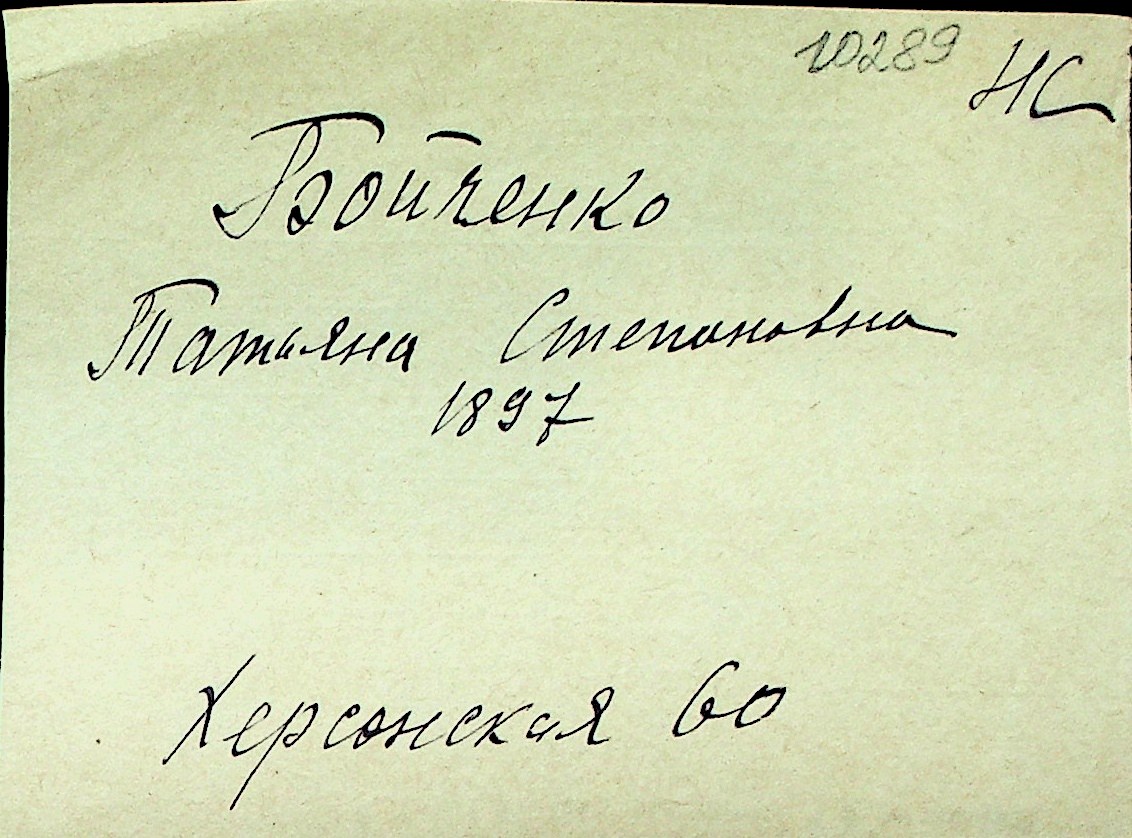 10289 НС
Бойченко
Татьяна Степановна
1897
Херсонская 60